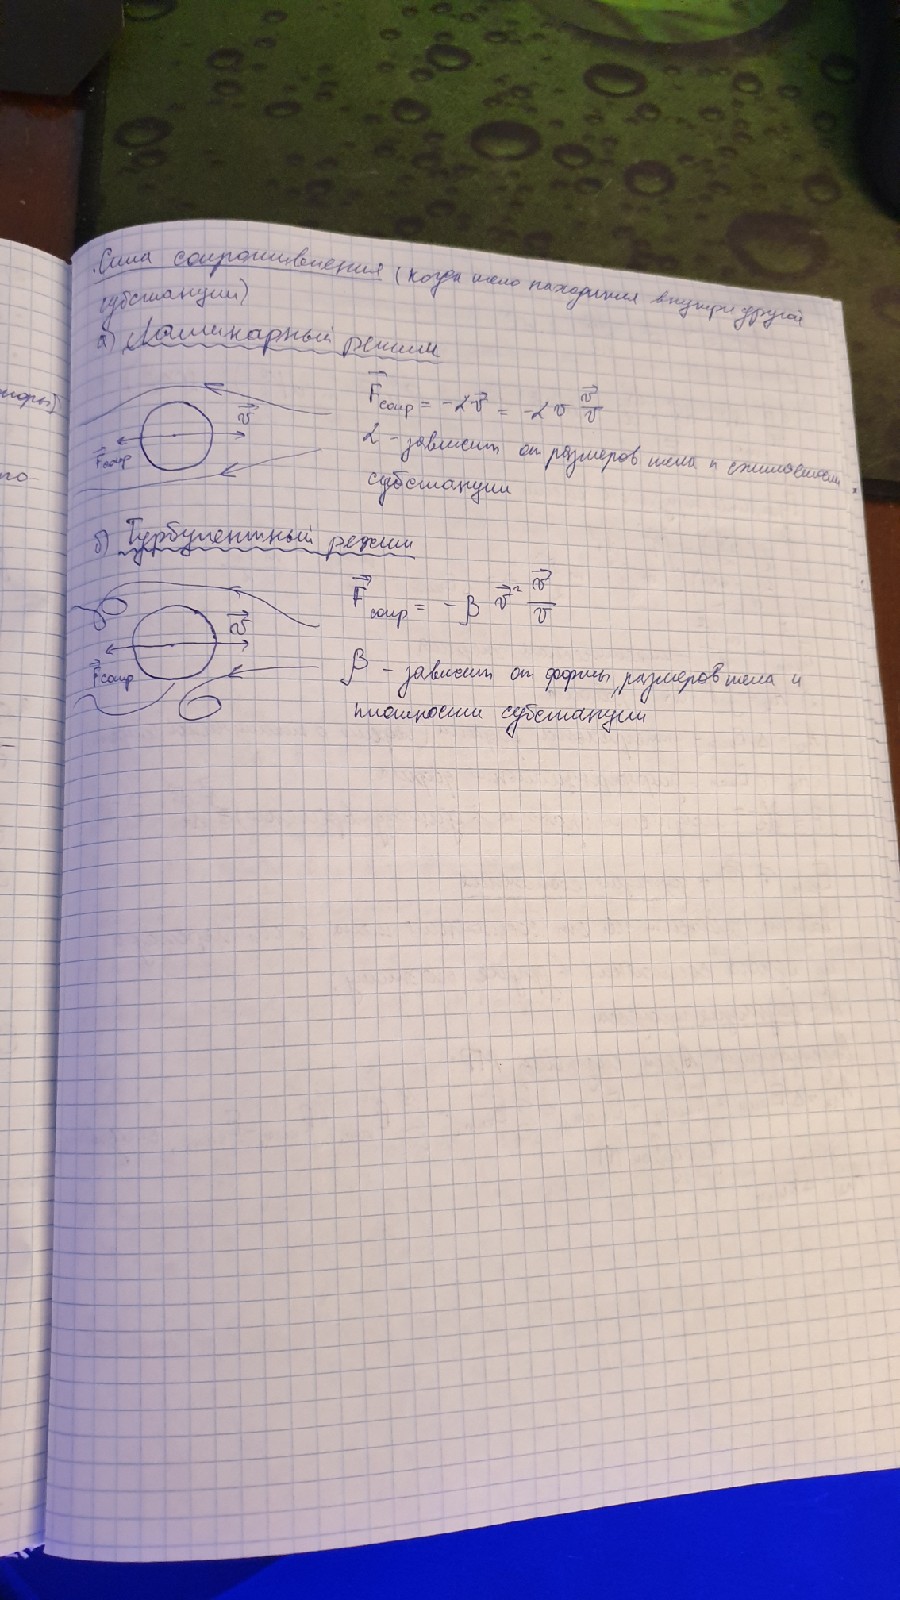 Сила сопротивления (когда тело находится внутри другой
субстанции)
а) Ламинарный режим
F⃗сопр = -α v⃗ = -α v v⃗/v
v⃗
F⃗сопр
α - зависит от размеров тела и
субстанции
б) Турбулентный режим
F⃗сопр = -β v⃗² v⃗/v
v⃗
F⃗сопр
β - зависит от формы, размеров тела и
плотности субстанции